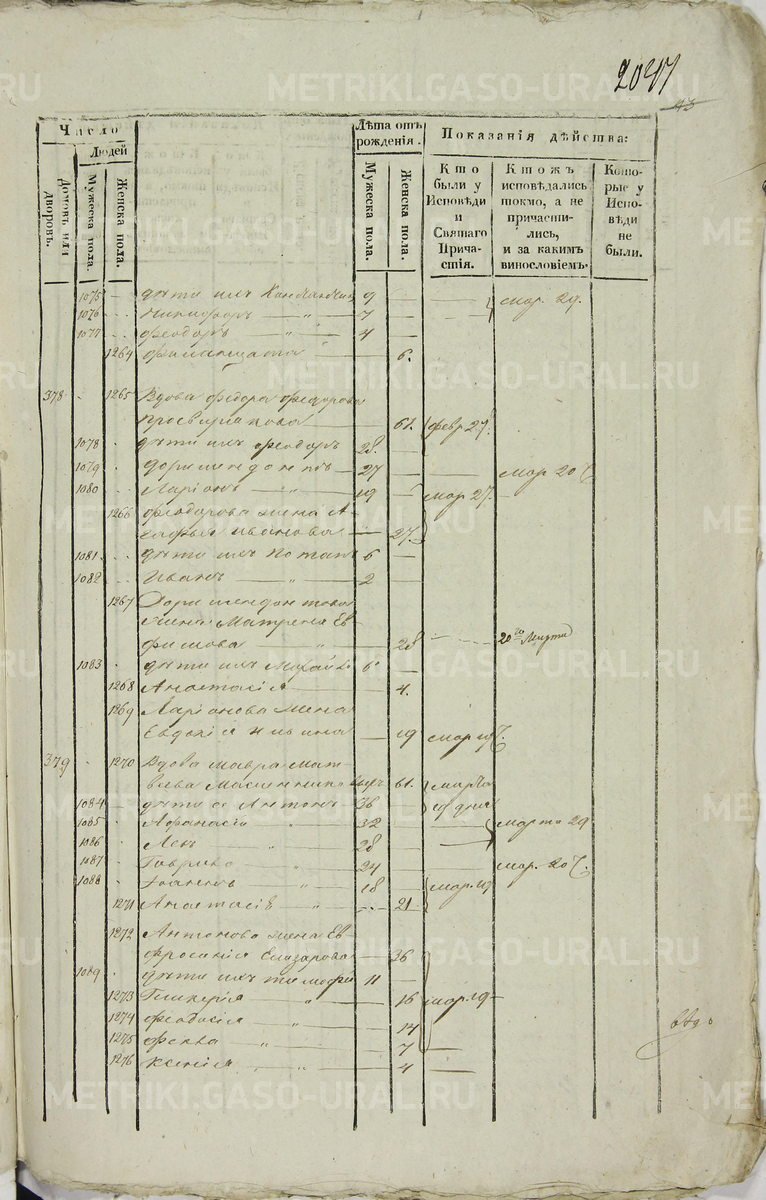 2047
43
Число
Людей
Домовъ или дворовъ.
Мужеска пола.
Женска пола.
Лѣта отъ рожденія.
Мужеска пола.
Женска пола.
Показанія дѣйства:
Кто были у Исповѣди и Святаго Причастія.
Ктожъ исповѣдались токмо, а не причастились, и за какимъ винословіемъ.
Которые у Исповѣди не были.
1075 дѣти ихъ 9 мар. 29.
1076 Никифоръ 7
1077 Феодоръ 4
1264 6.
378 1265 Вдова Федора Феодорова
61. февр 27.
1078 дѣти ихъ Феодоръ 28.
1079 27 мар 20
1080 Ларіонъ 19 мар 27.
1266 Феодорова жена А-
гафья Иванова 27.
1081 дѣти ихъ Потапъ 6
1082 Иванъ 2
1267 Доримендонтова
жена Матрена Ев
фимова 28 20го Марта
1083 дѣти ихъ Михайло 6
1268 Анастасія 4.
1269 Ларіонова жена
Евдокія Ильина 19 мар 19
379 1270 Вдова Мавра Мат-
вѣева 61. марта
1084 дѣти ея Антонъ 36 19 дня
1085 Афанасій 32 марта 29
1086 Левъ 28
1087 Гаврило 24 мар. 20
1088 Іоаннъ 18 мар. 19
1271 Анастасія 21
1272 Антонова жена Ев
фросинія Елизарова 36
1089 дѣти ихъ Тимофей 11
1273 Гликерія 16 мар. 19
1274 Феодосія 14
1275 Фекла 7
1276 Ксенія 4
METRIKI.GASO-URAL.RU